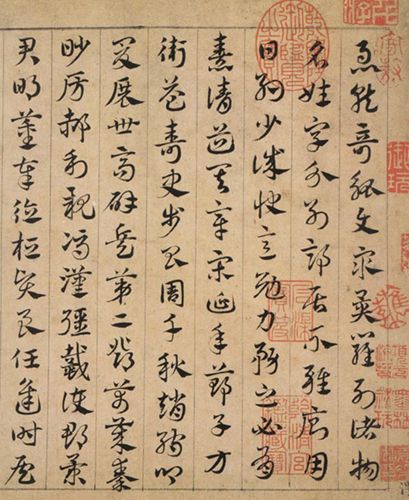 急就奇觚與眾異羅列諸物
名姓字分別部居不雜廁用
日約少誠快意勉力務之必有
憙請道其章宋延年鄭子方
衛益壽史步昌周千秋趙孺卿
爰展世高辟兵第二鄧萬歲秦
眇房郝利親馮漢彊戴護郡景
君明董奉德桓賢良任逢時侯